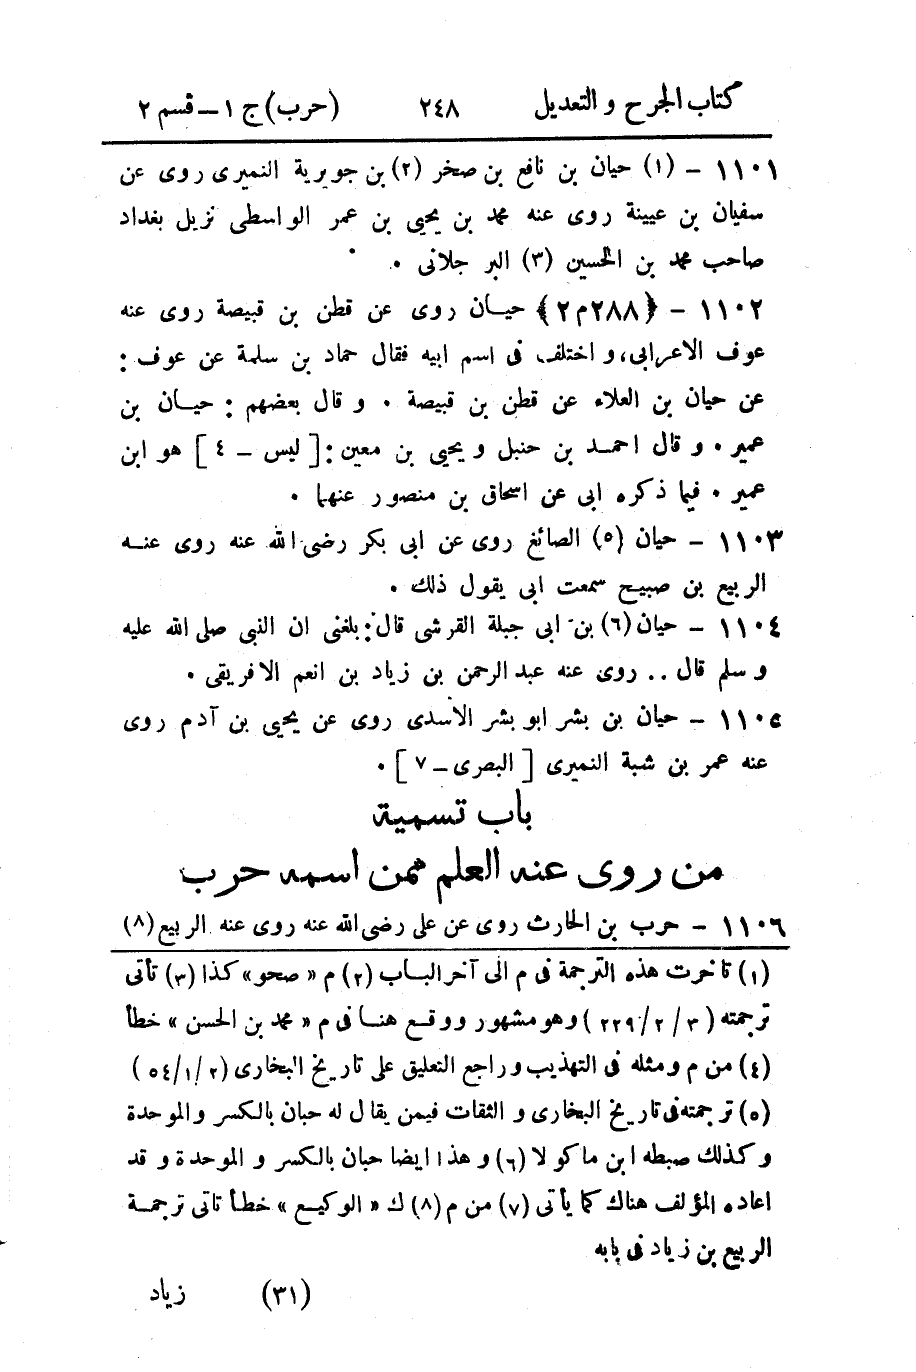 كتاب الجرح و التعديل ٢٤٨ (حرب) ج ١ – قسم ٢
١١٠١ – (١) حيان بن نافع بن صخر (٢) بن جويرية النميرى روى عن
سفيان بن عيينة روى عنه محمد بن يحيى بن عمر الواسطى نزيل بغداد
صاحب محمد بن الحسين (٣) البرجلانى .
١١٠٢ – ﴿٢٨٨م٢﴾ حيان روى عن قطن بن قبيصة روى عنه
عوف الاعرابى، و اختلف فى اسم ابيه فقال حماد بن سلمة عن عوف :
عن حيان بن العلاء عن قطن بن قبيصة . و قال بعضهم : حيان بن
عمير . و قال احمد بن حنبل و يحيى بن معين : [ ليس – ٤ ] هو ابن
عمير . فيما ذكره ابى عن اسحاق بن منصور عنهما .
١١٠٣ – حيان (٥) الصائغ روى عن ابى بكر رضى الله عنه روى عنه
الربيع بن صبيح سمعت ابى يقول ذلك .
١١٠٤ – حيان (٦) بن ابى جبلة القرشى قال : بلغنى ان النبى صلى الله عليه
و سلم قال .. روى عنه عبد الرحمن بن زياد بن انعم الافريقى .
١١٠٥ – حيان بن بشر ابو بشر الأسدى روى عن يحيى بن آدم روى
عنه عمر بن شبة النميرى [ البصرى – ٧ ] .
باب تسمية
من روى عنه العلم ممن اسمه حرب
١١٠٦ – حرب بن الحارث روى عن على رضى الله عنه روى عنه الربيع (٨)
(١) تأخرت هذه الترجمة فى م الى آخر الباب (٢) م « صحو » كذا (٣) تأتى
ترجمته (٣ / ٢ / ٢٢٩) وهو مشهور ووقع هنا فى م « محمد بن الحسن » خطأ
(٤) من م ومثله فى التهذيب وراجع التعليق على تاريخ البخارى (٢/ ١/ ٥٤)
(٥) ترجمته فى تاريخ البخارى و الثقات فيمن يقال له حبان بالكسر والموحدة
و كذلك ضبطه ابن ماكولا (٦) و هذا ايضا حبان بالكسر و الموحدة و قد
اعاده المؤلف هناك كما يأتى (٧) من م (٨) ك « الوكيع » خطأ تاتى ترجمة
الربيع بن زياد فى بابه
(٣١) زياد